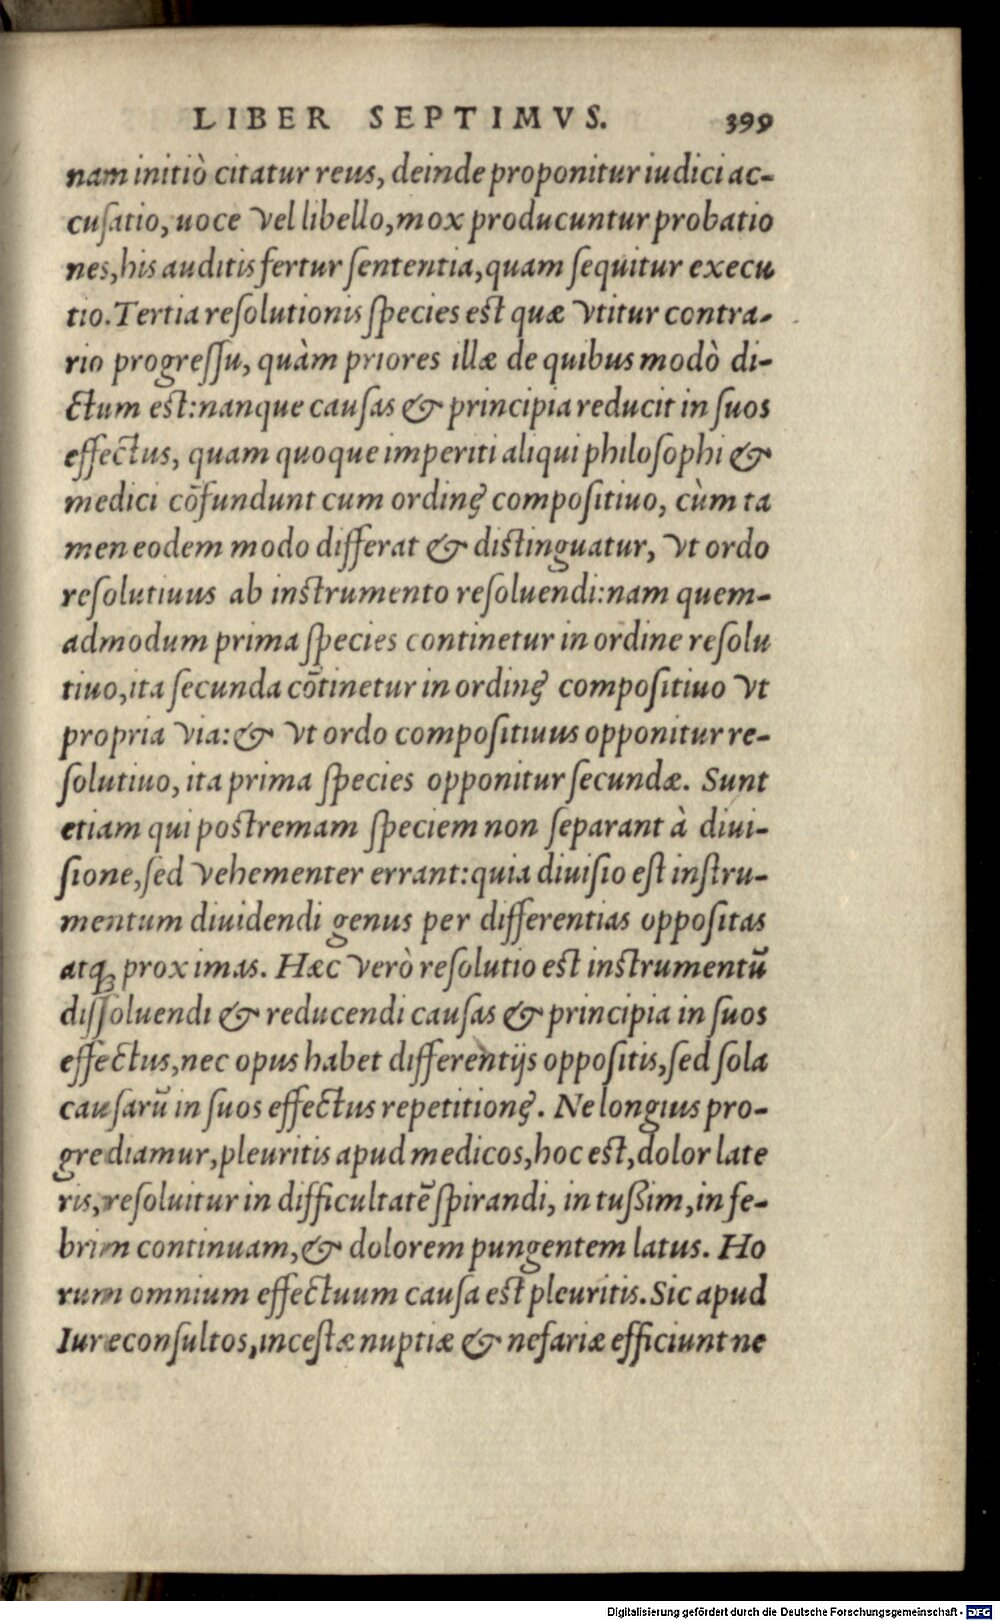 LIBER SEPTIMVS. 399
nam initiò citatur reus, deinde proponitur iudici ac-
cuſatio, uoce vel libello, mox producuntur probatio
nes, his auditis fertur ſententia, quam ſequitur execu
tio. Tertia reſolutionis ſpecies eſt quæ vtitur contra-
rio progreſſu, quàm priores illæ de quibus modò di-
ctum eſt: nanque cauſas & principia reducit in ſuos
effectus, quam quoque imperiti aliqui philoſophi &
medici cõfundunt cum ordinę compoſitiuo, cùm ta
men eodem modo differat & diſtinguatur, vt ordo
reſolutiuus ab inſtrumento reſoluendi: nam quem-
admodum prima ſpecies continetur in ordine reſolu
tiuo, ita ſecunda cõtinetur in ordinę compoſitiuo vt
propria via: & vt ordo compoſitiuus opponitur re-
ſolutiuo, ita prima ſpecies opponitur ſecundæ. Sunt
etiam qui poſtremam ſpeciem non ſeparant à diui-
ſione, ſed vehementer errant: quia diuiſio eſt inſtru-
mentum diuidendi genus per differentias oppoſitas
atq; proximas. Hæc verò reſolutio eſt inſtrumentũ
diſſoluendi & reducendi cauſas & principia in ſuos
effectus, nec opus habet differentijs oppoſitis, ſed ſola
cauſarũ in ſuos effectus repetitionę. Ne longius pro-
grediamur, pleuritis apud medicos, hoc eſt, dolor late
ris, reſoluitur in difficultatẽ ſpirandi, in tußim, in fe-
brim continuam, & dolorem pungentem latus. Ho
rum omnium effectuum cauſa eſt pleuritis. Sic apud
Iureconſultos, inceſtæ nuptiæ & nefariæ efficiunt ne
Digitalisierung gefördert durch die Deutsche Forschungsgemeinschaft - DFG